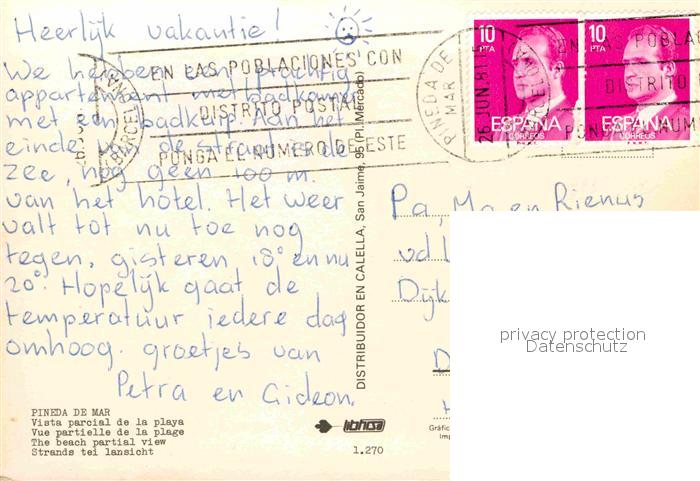 Heerlijk vakantie!
We hebben een prachtig
appartement met badkamer
met een badkuip. Aan het
einde v.d. straat is de
zee, nog geen 100 m.
van het hotel. Het weer
valt tot nu toe nog
tegen, gisteren 18° en nu
20°. Hopelijk gaat de
temperatuur iedere dag
omhoog. groetjes van
Petra en Gideon.
PINEDA DE MAR
Vista parcial de la playa
Vue partielle de la plage
The beach partial view
Strands tei lansicht
EN LAS POBLACIONES CON
DISTRITO POSTAL
PONGA EL NUMERO DE ESTE
(BARCELONA)
DISTRIBUIDOR EN CALELLA, San Jaime, 95 (Pl. Mercado)
1.270
PINEDA DE
MAR
26 JUN. 81
10
PTA
ESPAÑA
CORREOS
10
PTA
ESPAÑA
CORREOS
EN LAS POBLAC
DISTRITO
PONGA EL NUM
Pa, Ma en Rienus
vd
Dijk
D
Gráfic
Imp
privacy protection
Datenschutz